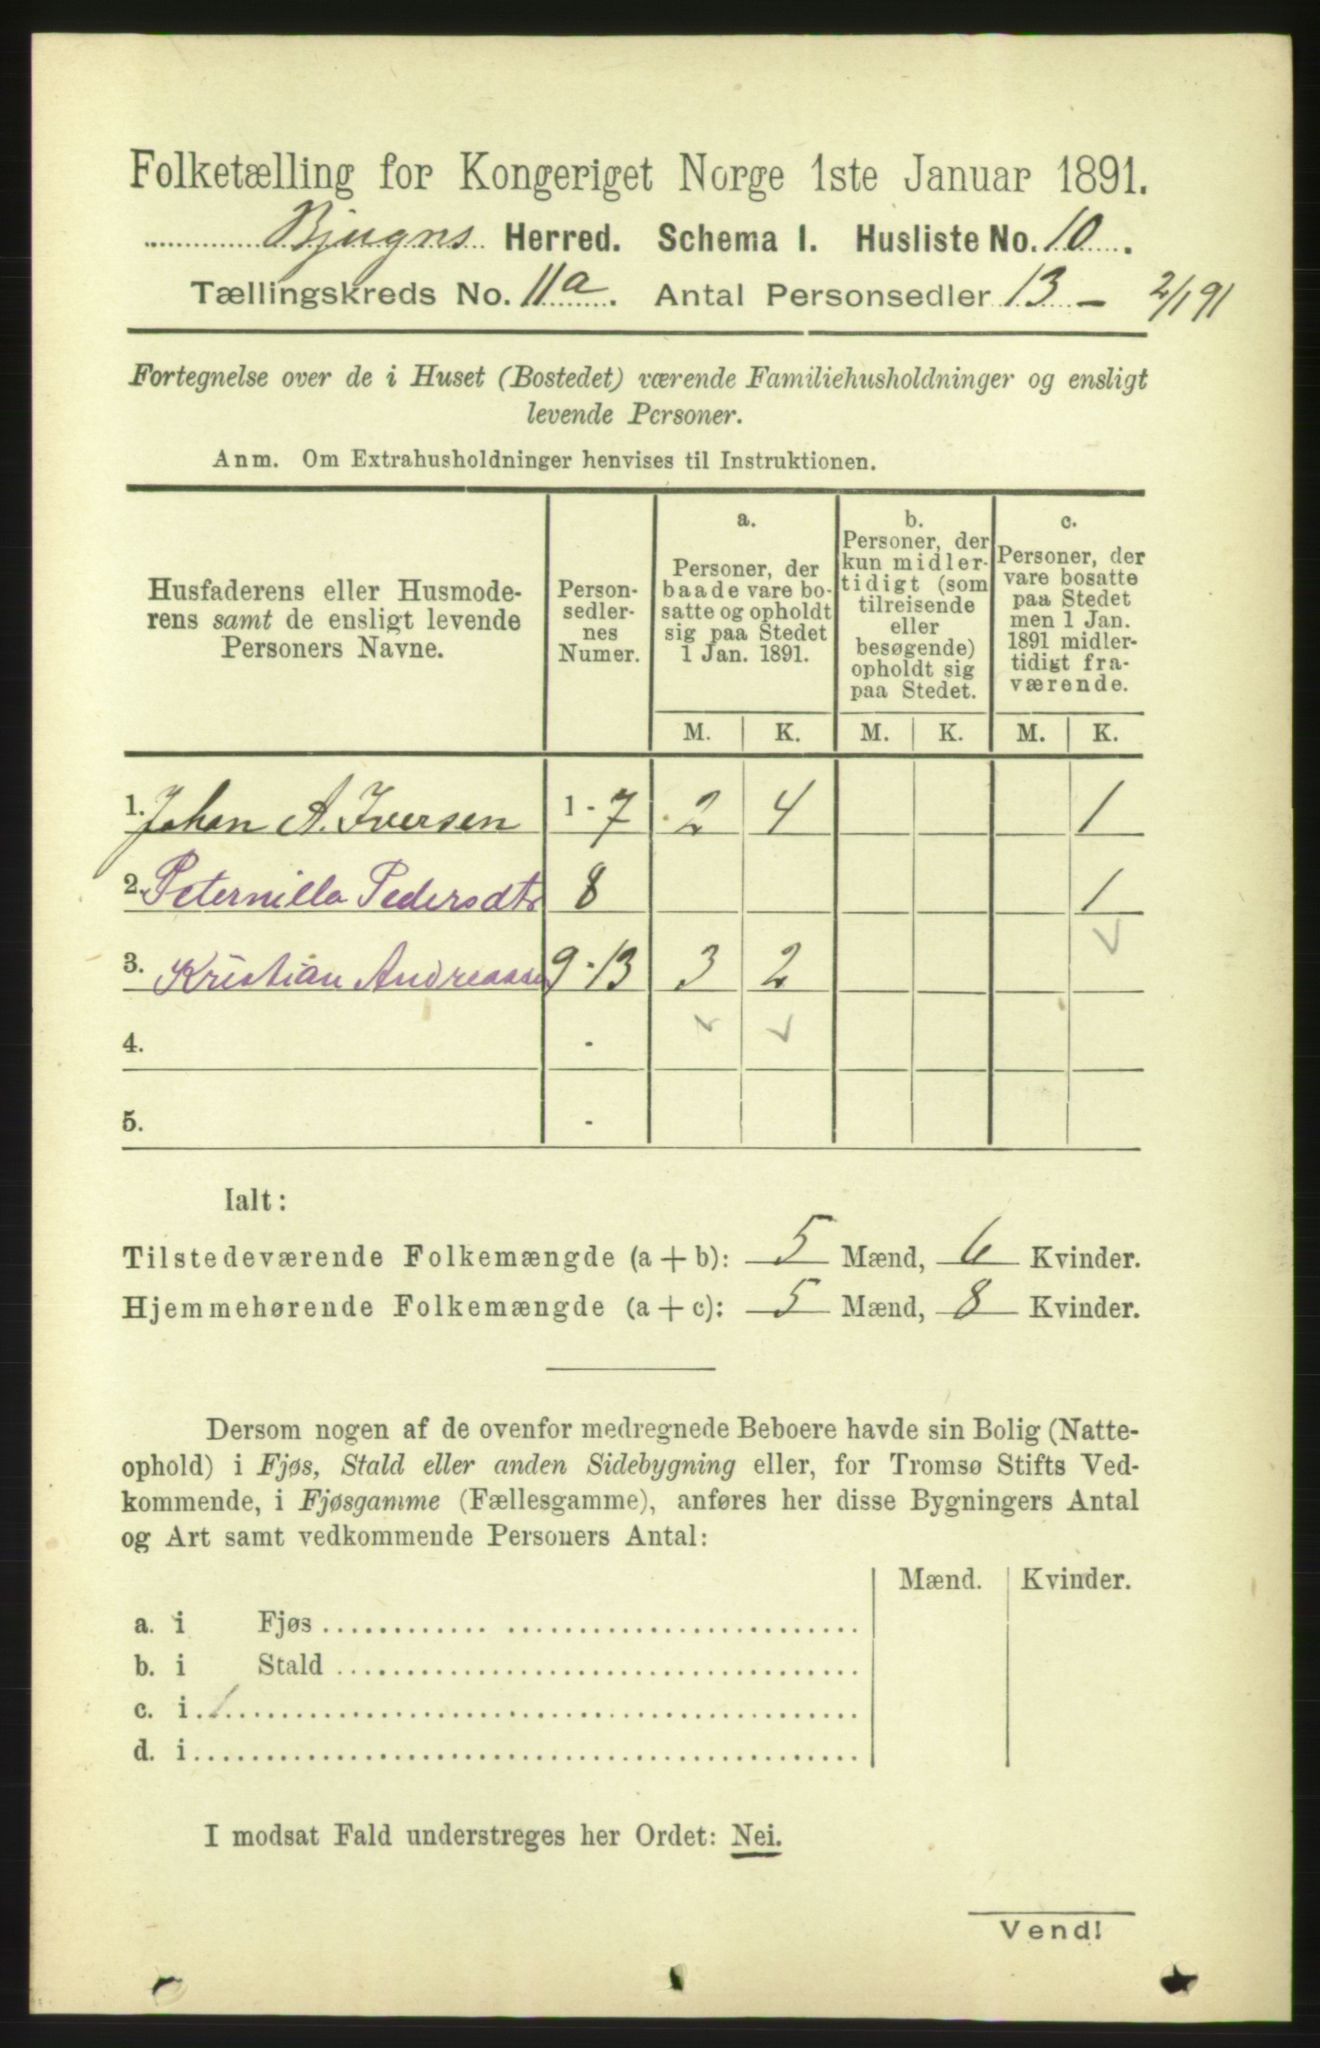 Folketælling for Kongeriget Norge 1ste Januar 1891.
Bjugns Herred. Schema I. Husliste No. 10.
Tællingskreds No. 11a. Antal Personsedler 13 - 2/1 91
Fortegnelse over de i Huset (Bostedet) værende Familiehusholdninger og ensligt
levende Personer.
Anm. Om Extrahusholdninger henvises til Instruktionen.
Husfaderens eller Husmode-
rens samt de ensligt levende
Personers Navne.
Person-
sedler-
nes
Numer.
a.
Personer, der
baade vare bo-
satte og opholdt
sig paa Stedet
1 Jan. 1891.
b.
Personer, der
kun midler-
tidigt (som
tilreisende
eller
besøgende)
opholdt sig
paa Stedet.
c.
Personer, der
vare bosatte
paa Stedet
men 1 Jan.
1891 midler-
tidigt fra-
værende.
M. K. M. K. M. K.
1. Johan A. Iversen 1 - 7 2 4 1
2. Peternilla Pedersdtr 8 1
3. Kristian Andreassen 9 - 13 3 2
4. -
5. -
Ialt:
Tilstedeværende Folkemængde (a + b): 5 Mænd, 6 Kvinder.
Hjemmehørende Folkemængde (a + c): 5 Mænd, 8 Kvinder.
Dersom nogen af de ovenfor medregnede Beboere havde sin Bolig (Natte-
ophold) i Fjøs, Stald eller anden Sidebygning eller, for Tromsø Stifts Ved-
kommende, i Fjøsgamme (Fællesgamme), anføres her disse Bygningers Antal
og Art samt vedkommende Personers Antal:
Mænd. Kvinder.
a. i Fjøs
b. i Stald
c. i
d. i
I modsat Fald understreges her Ordet: Nei.
Vend!